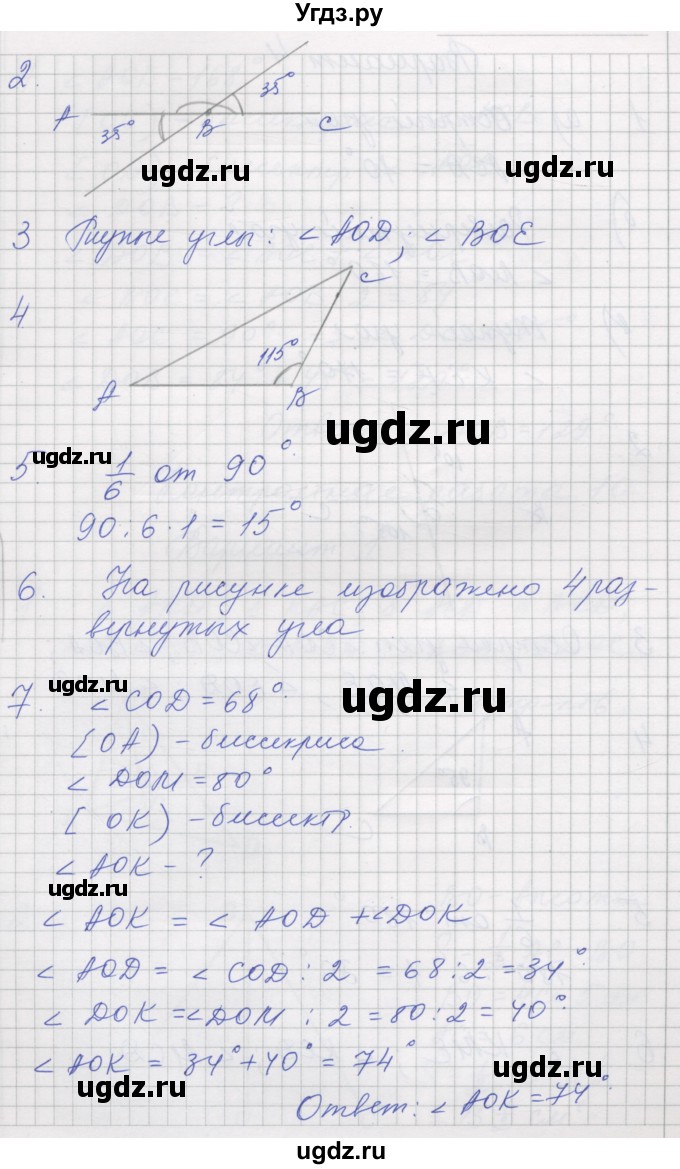 Угдз.ру
2.
35°
A 35° B C
ugdz.ru
3 Тупые углы: ∠ AOD; ∠ BOE
C
4
115°
A B
ugdz.ru
ugdz.ru
5. 1/6 от 90°
90 : 6 · 1 = 15°
ugdz.ru
6. На рисунке изображено 4 раз-
вернутых угла
ugdz.ru ugdz.ru
7. ∠ COD = 68°
[OA) – биссектриса
∠ DOM = 80°
[OK) – биссектр.
∠ AOK – ?
ugdz.ru
∠ AOK = ∠ AOD + ∠DOK
∠ AOD = ∠ COD : 2 = 68 : 2 = 34°
∠ DOK = ∠DOM : 2 = 80 : 2 = 40°
∠ AOK = 34° + 40° = 74°
ugdz.ru
Ответ: ∠ AOK = 74°
ugdz.ru